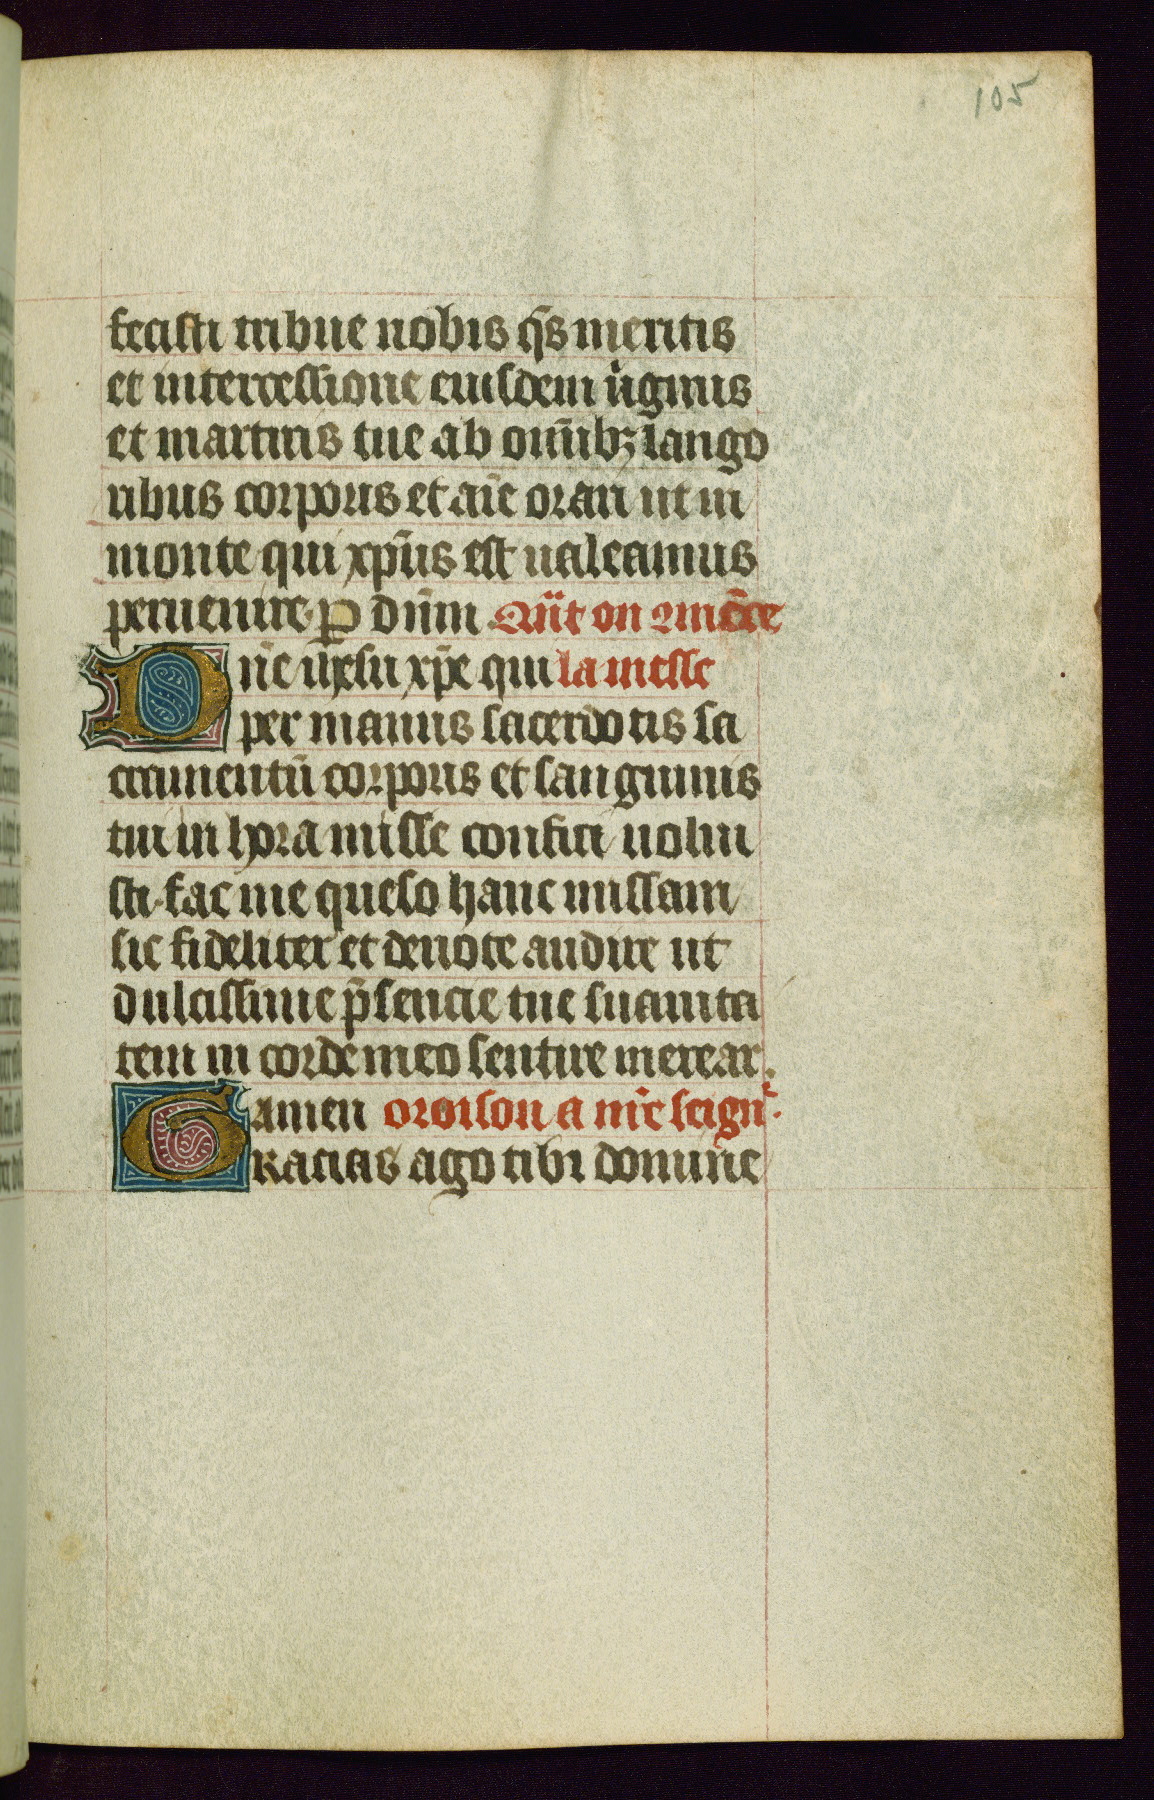 105
fecisti tribue nobis q̄s meritis
et intercessione eiusdem uⁱginis
et martiris tue ab om̄ibꝫ lango
ribus corporis et aīe orari ut in
monte qui xp̄us est ualeamus
peruenire. ꝑ dn̄m Qn̄t on 9mēce
Dn̄e ih̄esu xp̄e qui la messe
per manus sacerdotis sa
cramentū corporis et sanguinis
tui in hora misse confici uolui
sti. fac me queso hanc missam
sic fideliter et deuote audire ut
dulcissime p̄sencie tue suauita
tem in corde meo sentire merear.
amen oroison a nr̄e seign᷑.
Gracias ago tibi domine